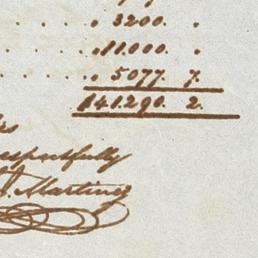 " 3200. "
" 11.000. "
" 5077. 7.
141.290. 2.
espectfully
J. Martinez